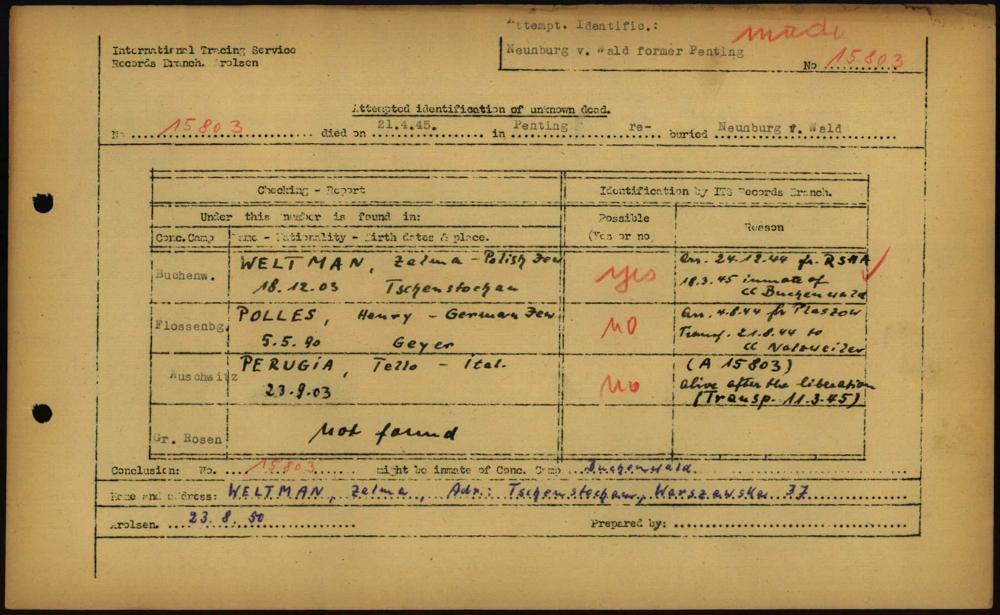 Attempt. Identific.: made
International Tracing Service
Neunburg v. Wald former Penting
Records Branch. Arolsen
No 15803
Attempted identification of unknown dead.
No 15803 died on 21.4.45. in Penting re- buried Neunburg v. Wald
Checking - Report
Identification by ITS Records Branch.
Under this number is found in:
Possible (Yes or no)
Reason
Conc. Camp
Name - Nationality - Birth dates & place.
Buchenw.
WELTMAN, Zelma - Polish Jew
18.12.03 Tschenstochau
yes
Arr. 24.12.44 fr. RSHA
18.3.45 inmate of
CC Buchenwald
Flossenbg.
POLLES, Henry - German Jew
5.5.90 Geyer
NO
Arr. 4.8.44 fr Plaszow
Transf. 21.8.44 to
CC Natzweiler
Auschwitz
PERUGIA, Tello - ital.
23.9.03
No
(A 15803)
alive after the liberation
(Transp. 11.3.45)
Gr. Rosen
Not found
Conclusion: No. 15803 might be inmate of Conc. Camp Buchenwald
Name and address: WELTMAN, Zelma, Adr.: Tschenstochau, Warszawska 37
Arolsen. 23.8.50
Prepared by: